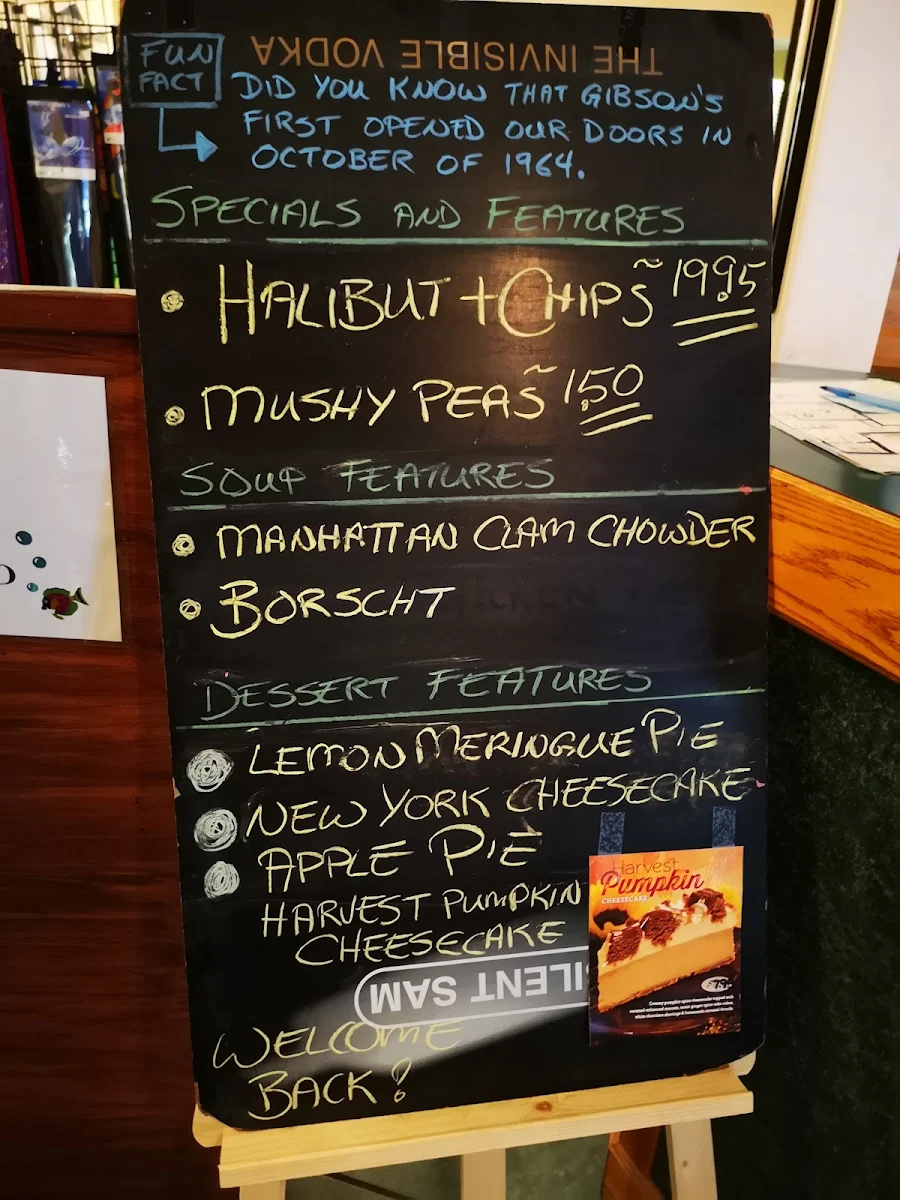 THE INVISIBLE VODKA
FUN
FACT
DID YOU KNOW THAT GIBSON'S
FIRST OPENED OUR DOORS IN
OCTOBER OF 1964.
SPECIALS AND FEATURES
• HALIBUT + CHIPS ~ 19.95
• MUSHY PEAS ~ 1.50
SOUP FEATURES
• MANHATTAN CLAM CHOWDER
• BORSCHT
DESSERT FEATURES
• LEMON MERINGUE PIE
• NEW YORK CHEESECAKE
• APPLE PIE
HARVEST PUMPKIN
CHEESECAKE
Harvest
Pumpkin
CHEESECAKE
SILENT SAM
WELCOME
BACK!